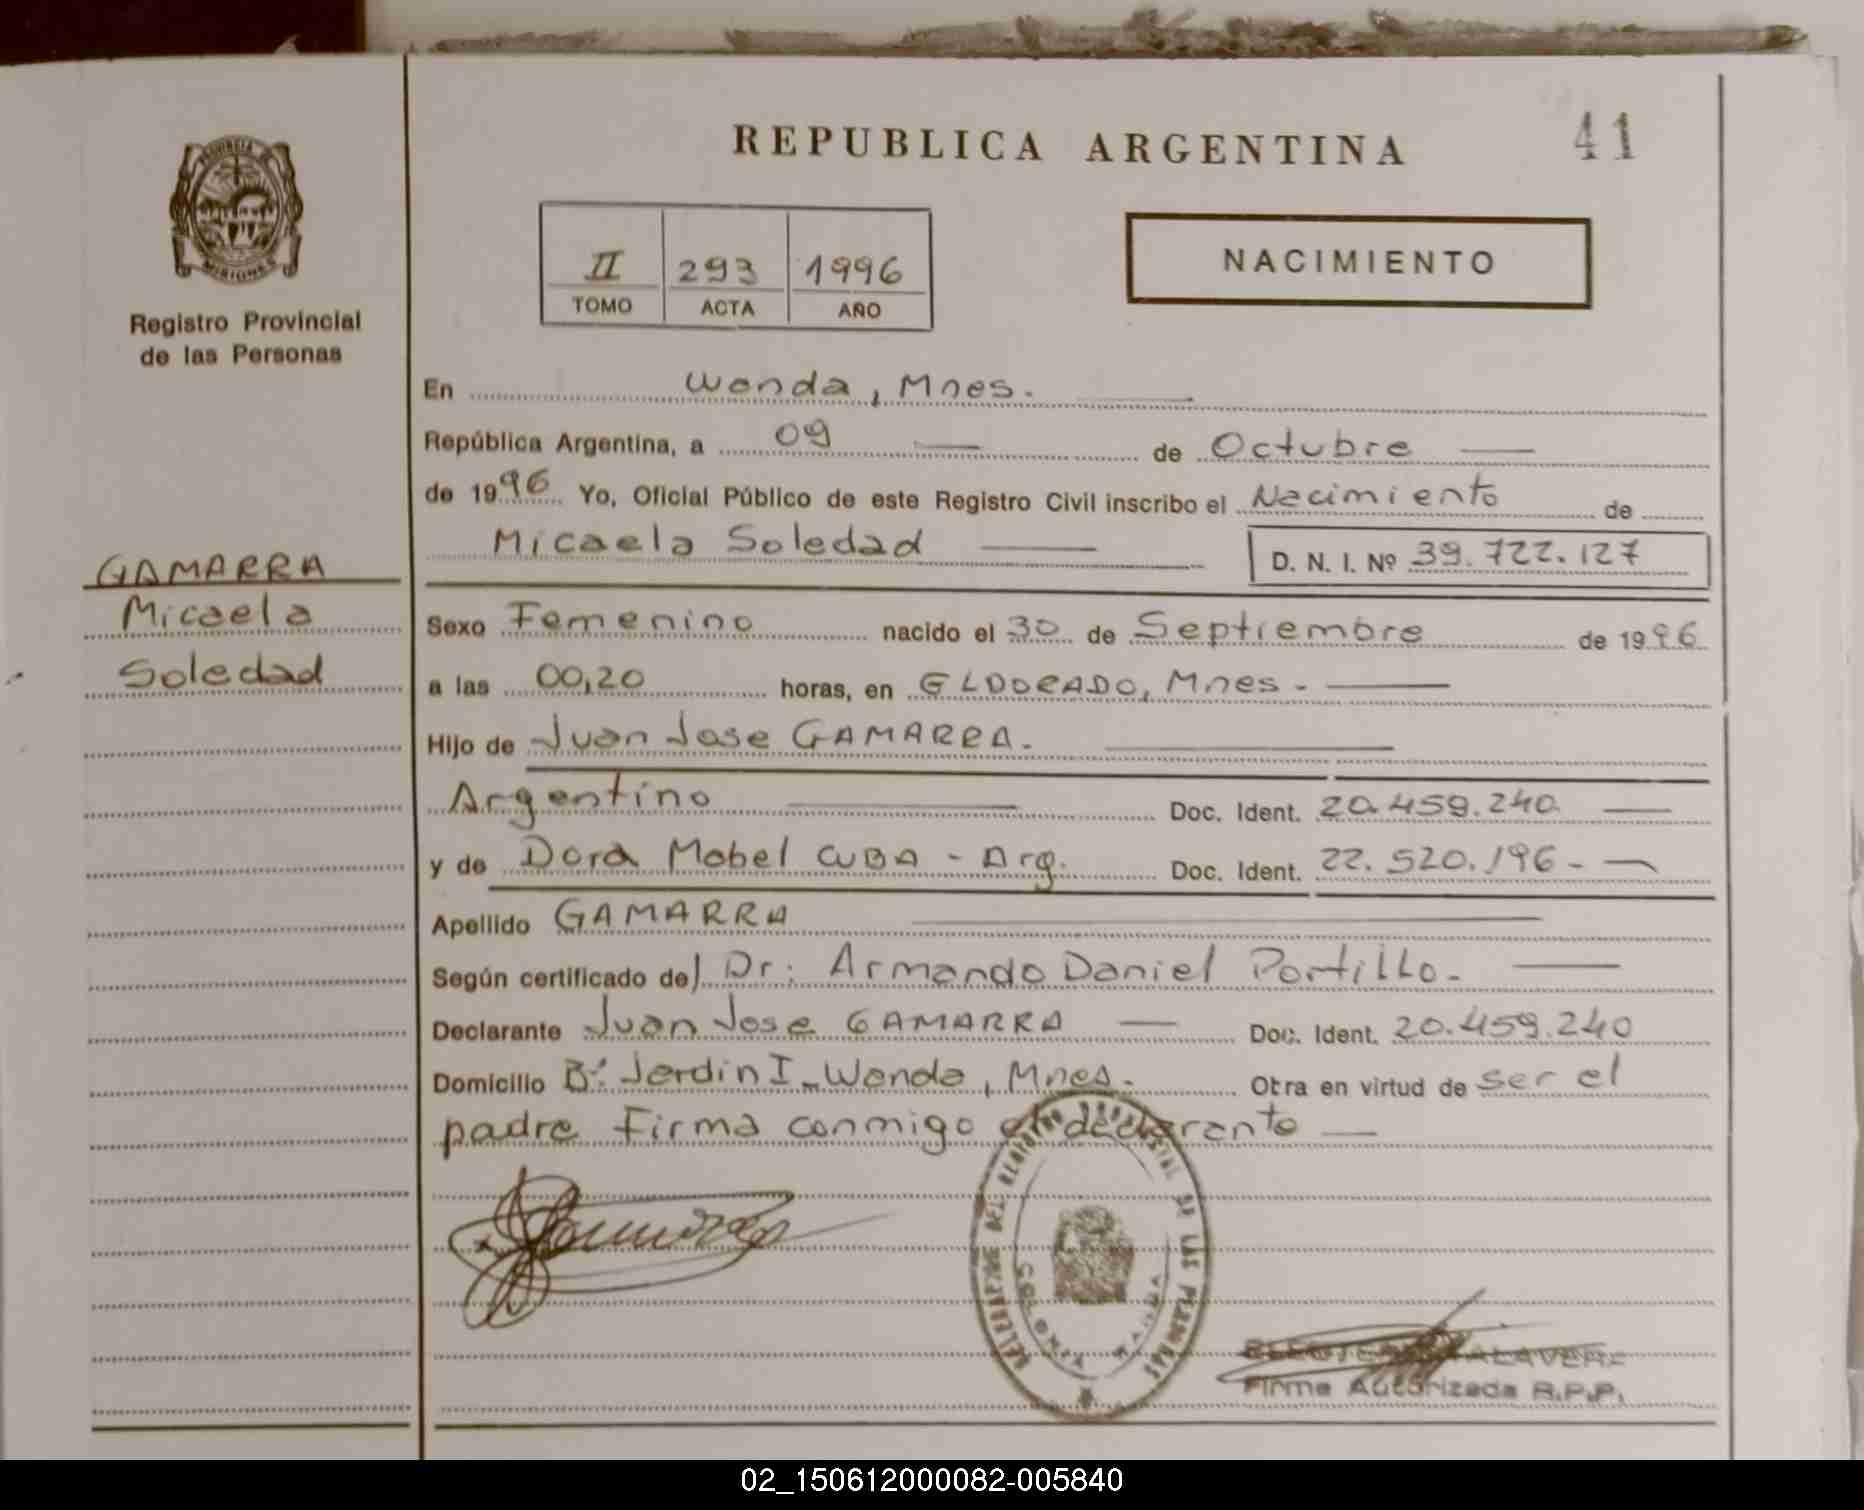 REPUBLICA ARGENTINA
41
PROVINCIA DE
MISIONES
Registro Provincial
de las Personas
II 293 1996
TOMO ACTA AÑO
NACIMIENTO
En Wanda, Mnes.
República Argentina, a 09 de Octubre
de 1996 Yo, Oficial Público de este Registro Civil inscribo el Nacimiento de
Micaela Soledad
D. N. I. Nº 39.722.127
GAMARRA
Micaela
Soledad
Sexo Femenino nacido el 30 de Septiembre de 1996
a las 00,20 horas, en ELDORADO, Mnes.-
Hijo de Juan Jose GAMARRA.
Argentino Doc. Ident. 20.459.240
y de Dora Mabel CUBA - Arg. Doc. Ident. 22.520.196-
Apellido GAMARRA
Según certificado de Dr: Armando Daniel Portillo-
Declarante Juan Jose GAMARRA Doc. Ident. 20.459.240
Domicilio Bº Jardin I_Wanda, Mnes. Otra en virtud de ser el
padre Firma conmigo el declarante
DEL REGISTRO PROVINCIAL DE LAS PERSONAS
COLONIA WANDA
Firma Autorizada R.P.P.
02_150612000082-005840